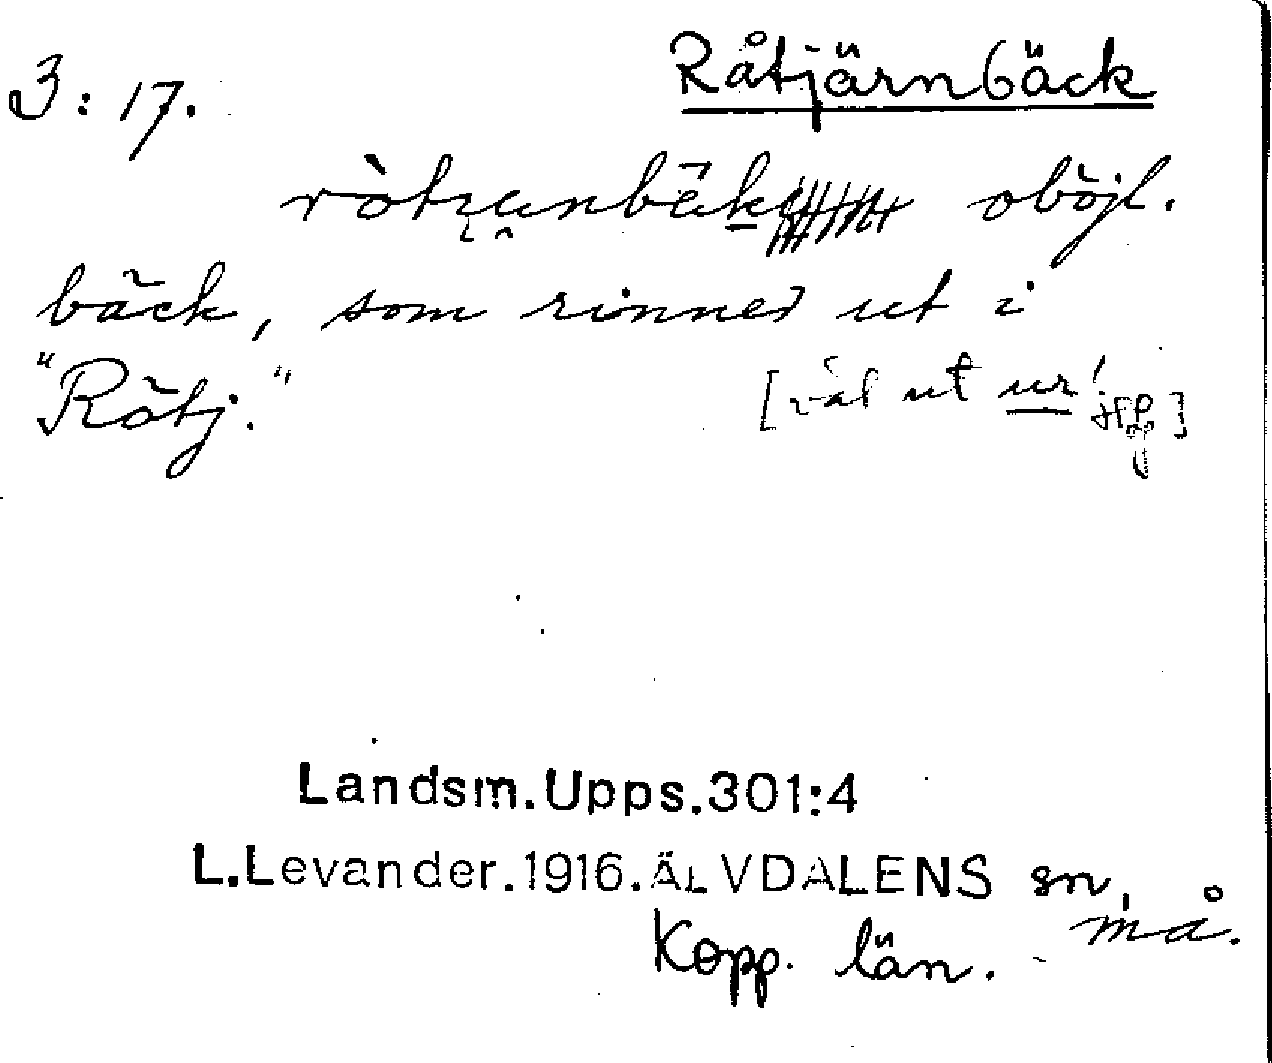 3:17.
Råtjärnbäck
oböjl.
bäck, som rinner ut i
"Råtj."
[väl ut ur!]
Landsm.Upps.301:4
L.Levander.1916.ÄLVDALENS sn,
må.
Kopp. län.